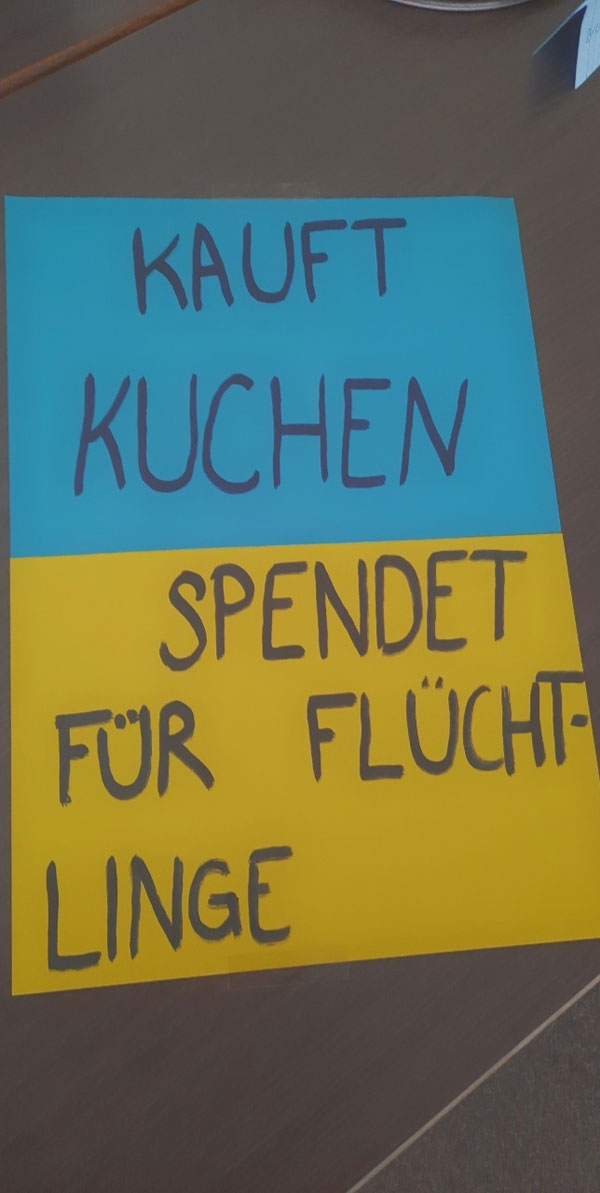 KAUFT
KUCHEN
SPENDET
FÜR FLÜCHT-
LINGE